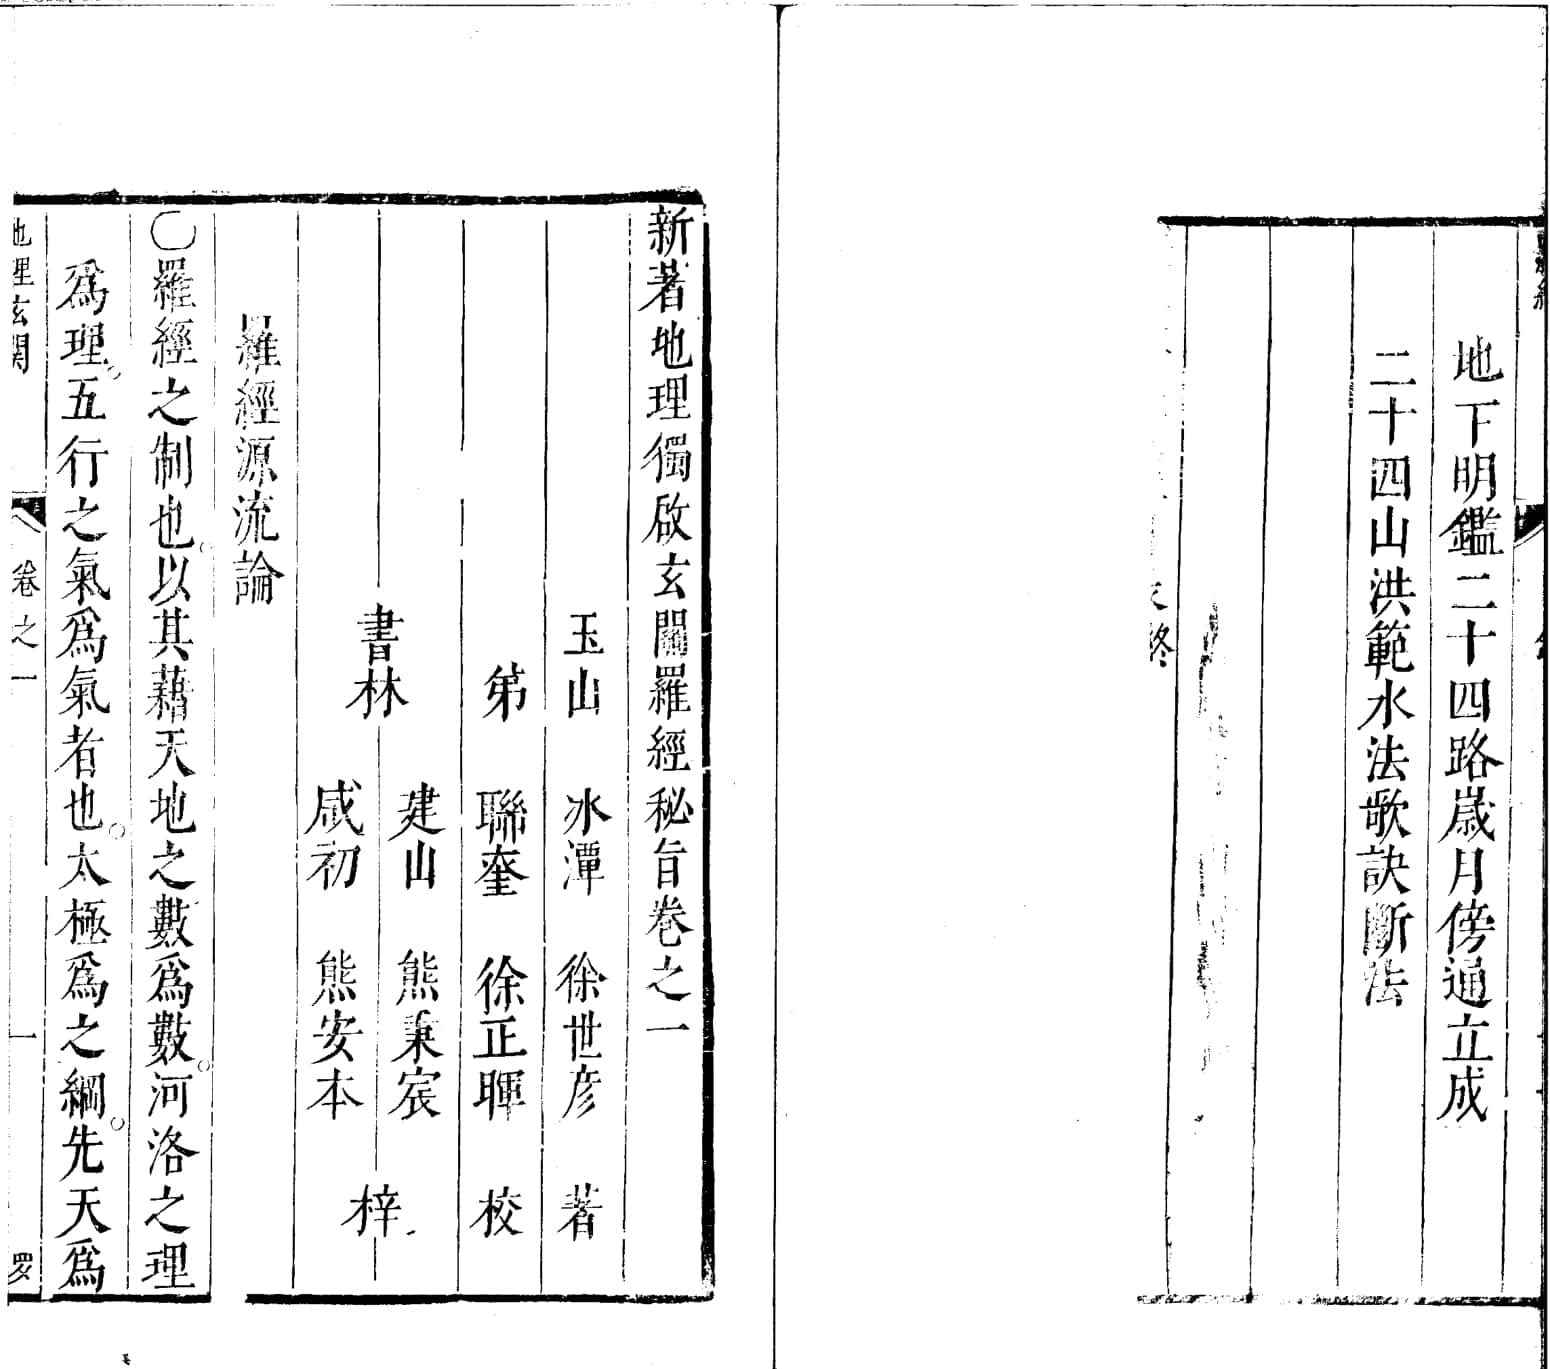 地下明鑑二十四路歲月傍通立成
二十四山洪範水法歌訣斷法
終
新著地理獨啟玄關羅經秘旨卷之一
玉山 冰潭 徐世彥 著
弟 聯奎 徐正暉 校
書林 建山 熊秉宸 梓
咸初 熊安本
羅經源流論
〇羅經之制也。以其藉天地之數為數。河洛之理
為理。五行之氣為氣者也。太極為之綱。先天為
地理玄関 卷之一 一